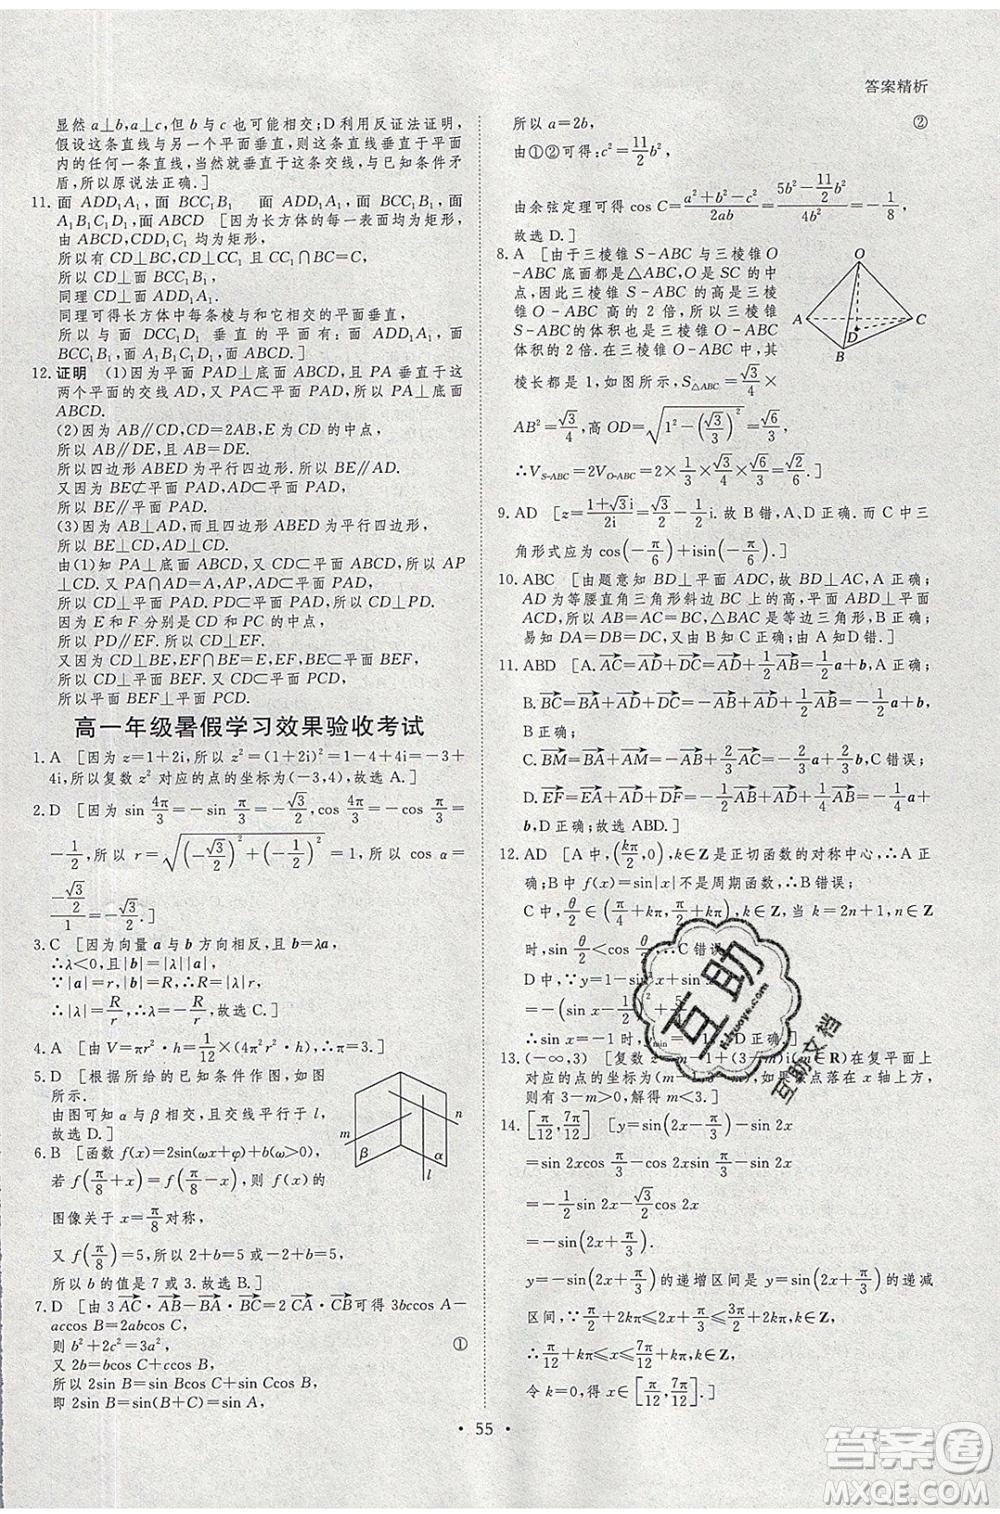 答案精析
显然 a⊥b,a⊥c,故 b 与 c 也可能相交;D 利用反证法证明,
假设这条直线与另一个平面垂直,则这条直线垂直平面
内的任何一条直线,当然就垂直于这条交线,与已知条件矛
盾,所以原说法正确.]
11. 面 ADD₁A₁,面 BCC₁B₁ 面 ADD₁A₁,面 BCC₁B₁,面
A₁B₁C₁D₁,面 ABCD [因为长方体的每一表面均为矩形,
由 ABCD,CDD₁C₁ 均为矩形,
所以有 CD⊥BC,CD⊥CC₁,BC∩CC₁=C,
所以 CD⊥面 BCC₁B₁,
同理 CD⊥面 ADD₁A₁.
同理可得长方体中每条棱与和它的相交的平面垂直,
所以与面 DCC₁D₁ 垂直的平面有:面 ADD₁A₁,面
BCC₁B₁,面 A₁B₁C₁D₁,面 ABCD.]
12. 证明 (1)因为平面 PAD⊥底面 ABCD,且 PA 垂直于这
两个平面的交线 AD,PA⊂平面 PAD,所以 PA⊥底面
ABCD.
(2)因为 AB∥CD,CD=2AB,E 为 CD 的中点,
所以 AB∥DE,且 AB=DE.
所以四边形 ABED 为平行四边形,所以 BE∥AD.
又因为 BE⊄平面 PAD,AD⊂平面 PAD,
所以 BE∥平面 PAD.
(3)因为 AB⊥AD,而且四边形 ABED 为平行四边形,
所以 BE⊥CD,AD⊥CD.
由(1)知 PA⊥底面 ABCD,CD⊂平面 ABCD,所以 AP⊥
CD.又因为 PA∩AD=A,PA,AD⊂平面 PAD,所以
CD⊥平面 PAD.PD⊂平面 PAD,所以 CD⊥PD.
因为 E 和 F 分别是 CD 和 PC 的中点,
所以 PD∥EF.所以 CD⊥EF.
又因为 CD⊥BE,EF∩BE=E,EF,BE⊂平面 BEF,
所以 CD⊥平面 BEF.又因为 CD⊂平面 PCD,
所以平面 BEF⊥平面 PCD.
高一年级暑假学习效果验收考试
1. A [因为 z=1+2i,所以 z²=(1+2i)²=1-4+4i=-3+
4i,所以复数 z² 对应的点的坐标为(-3,4),故选 A.]
2. D [因为 sin 4π/3=-sin π/3=-√3/2,cos 4π/3=-cos π/3=
-1/2,所以 r=√((-√3/2)²+(-1/2)²)=1,所以 cos α=
(-√3/2)/1=-√3/2.]
3. C [因为向量 a 与 b 方向相反,且 b=λa,
∴λ<0,且|b|=|λa|=|λ||a|=-λ|a|.
∵|a|=r,|b|=R,∴R=|λ|r,
∴|λ|=R/r,∴λ=-R/r,故选 C.]
4. A [由 V=πr²·h=1/12×(2πr)²·h,得 π=3.故选 A.]
5. D [根据所给的已知条件作图,如图
所示.
由图可知 α 与 β 相交,且交线平行于 l,
故选 D.]
m
n
β
α
l
6. B [函数 f(x)=2sin(ωx+φ)+b(ω>0),
若 f(π/8+x)=f(π/8-x),则 f(x)的
图像关于 x=π/8对称,
又 f(π/8)=0,所以 2+b=0 或-2+b=0,
所以 b 的值是 2 或-2.故选 B.]
7. D [由 3AC·AB-BA·BC=2CA·CB可得 3bccos A-
accos B=2abcos C,
则 b²+2c²=3a², ①
又 2b=bcos C+ccos B,
所以 2sin B=sin Bcos C+sin Ccos B,
即 2sin B=sin(B+C)=sin A,
所以 a=2b, ②
由①②可得:c²=11/2 b²,
由余弦定理可得 cos C=(a²+b²-c²)/2ab=(5b²-11/2 b²)/4b²=-1/8,
故选 D.]
8. A [由于三棱锥 S-ABC 与三棱锥 O
-ABC 底面都是△ABC,O 是 SC 的中
点,因此三棱锥 S-ABC 的高是三棱
锥 O-ABC 高的 2 倍,所以三棱锥
S-ABC的体积也是三棱锥 O-ABC
体积的 2 倍.在三棱锥 O-ABC 中,其
棱长都是 1,如图所示,S△ABC=√3/4×
O
A
C
D
B
AB²=√3/4,高 OD=√(1²-(√3/3)²)=√6/3,
∴V_S-ABC=2V_O-ABC=2×1/3×√3/4×√6/3=√2/6.]
9. AD [z=(1+√3i)/2i=√3/2-1/2i.故 B 错,A、D 正确.而 C 中三
角形式应为 cos(-π/6)+isin(-π/6).]
10. ABC [由题意知 BD⊥平面 ADC,故 BD⊥AC,A 正确;
AD 为等腰直角三角形斜边 BC 上的高,平面 ABD⊥平面
ACD,所以 AB=AC=BC,△BAC 是等边三角形,B 正确;
易知 DA=DB=DC,又由 B 知 C 正确;由 A 知 D 错.]
11. ABD [A.AC=AD+DC=AD+1/2AB=1/2a+b,A 正确;
B.BC=BA+AD+DC=-AB+AD+1/2AB=-1/2a+b,B 正确;
C.BM=BA+AM=-AB+1/2AC=-3/4a+1/2b,C 错误;
D.EF=EA+AD+DF=-1/2AB+AD+1/4AB=-1/4a+
b,D 正确;故选 ABD.]
12. AD [A 中,(kπ/2,0),k∈Z 是正切函数的对称中心,∴A 正
确;B 中 f(x)=sin|x|不是周期函数,∴B 错误;
C 中,θ/2∈(π/4+kπ,π/2+kπ),k∈Z,当 k=2n+1,n∈Z
时,sin θ/2<cos θ/2,∴C 错误
D 中,∵
=-(sin x-1/2)²+5
∴sin x=-1 时,
13. (-∞,3) [复数 z=m-1+(3-m)i(m∈R)在复平面上对
应的点的坐标为(m-1,3-m),如果该点落在 x 轴上方,
则有 3-m>0,解得 m<3.]
14. [π/12,7π/12] [y=sin(2x-π/3)-sin 2x
=-1/2sin 2x-√3/2cos 2x
=-sin(2x+π/3).
y=-sin(2x+π/3)的递增区间是 y=sin(2x+π/3)的递减
区间,∵π/2+2kπ≤2x+π/3≤3π/2+2kπ,k∈Z,
∴π/12+kπ≤x≤7π/12+kπ,k∈Z,
令 k=0,得 x∈[π/12,7π/12].]
互助
互助文档
• 55 •
答案圈
MXQE.COM